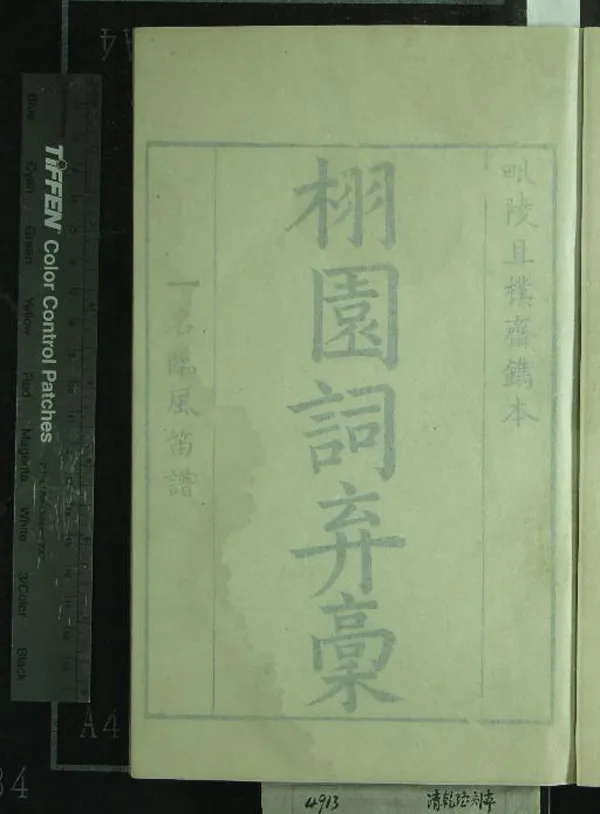 毗陵且樸齋鐫本
栩園詞弃稾
一名臨風笛譜
TIFFEN Color Control Patches
Blue
Cyan
Green
Yellow
Red
Magenta
White
3/Color
Black
A4
A4
4913
清乾隆刻本